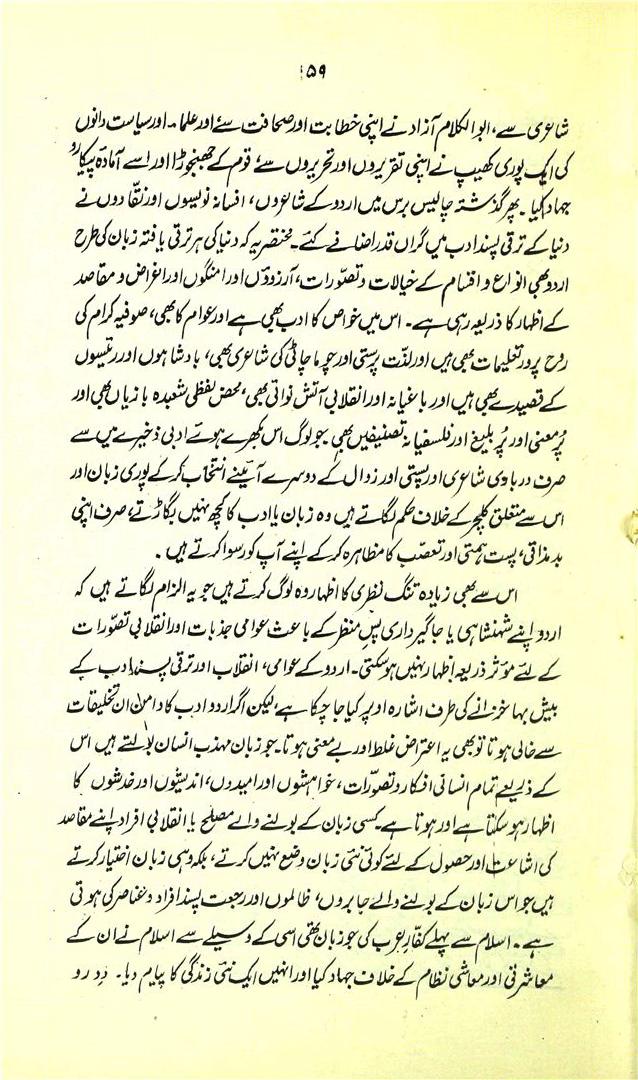 ۱۵۹
شاعری سے، ابوالکلام آزاد نے اپنی خطابت اور صحافت سے اور علماء اور سیاست دانوں
کی ایک پوری کھیپ نے اپنی تقریروں اور تحریروں سے قوم کے جھنجھوڑا اور اسے آمادۂ پیکار و
جہاد کیا۔ پھر گذشتہ چالیس برس میں اردو کے شاعروں، افسانہ نویسوں اور نقادوں نے
دنیا کے ترقی پسند ادب میں گراں قدر اضافے کئے۔ مختصر یہ کہ دنیا کی ہر ترقی یافتہ زبان کی طرح
اردو بھی انواع و اقسام کے خیالات و تصوّرات، آرزوؤں اور امنگوں اور اغراض و مقاصد
کے اظہار کا ذریعہ رہی ہے۔ اس میں خواص کا ادب بھی ہے اور عوام کا بھی، صوفیہ کرام کی
روح پرور تعلیمات بھی ہیں اور لذّت پرستی اور چوما چاٹی کی شاعری بھی، بادشاہوں اور رئیسوں
کے قصیدے بھی ہیں اور باغیانہ اور انقلابی آتش نوائی بھی، محض لفظی شعبدہ بازیاں بھی اور
پُرمعنی اور پُر بلیغ اور فلسفیانہ تصنیفیں بھی۔ جو لوگ اس بکھرے ہوئے ادبی ذخیرے میں سے
صرف درباری شاعری اور پستی اور زوال کے دوسرے آئینے انتخاب کر کے پوری زبان اور
اس سے متعلق کلچر کے خلاف حکم لگاتے ہیں وہ زبان یا ادب کا کچھ نہیں بگاڑتے، صرف اپنی
بدمذاقی، پست ہمتی اور تعصّب کا مظاہرہ کر کے اپنے آپ کو رسوا کرتے ہیں۔
اس سے بھی زیادہ تنگ نظری کا اظہار وہ لوگ کرتے ہیں جو یہ الزام لگاتے ہیں کہ
اردو اپنے شہنشاہی یا جاگیرداری پس منظر کے باعث عوامی جذبات اور انقلابی تصوّرات
کے لئے مؤثر ذریعہ اظہار نہیں ہو سکتی۔ اردو کے عوامی، انقلاب اور ترقی پسند ادب کے
بیش بہا خزانے کی طرف اشارہ اوپر کیا جا چکا ہے، لیکن اگر اردو ادب کا دامن ان تخلیقات
سے خالی ہوتا تو بھی یہ اعتراض غلط اور بے معنی ہوتا۔ جو زبان مہذب انسان بولتے ہیں اس
کے ذریعے تمام انسانی افکار و تصوّرات، خواہشوں اور امیدوں، اندیشوں اور خدشوں کا
اظہار ہو سکتا ہے اور ہوتا ہے۔ کسی زبان کے بولنے والے مصلح یا انقلابی افراد اپنے مقاصد
کی اشاعت اور حصول کے لئے کوئی نئی زبان وضع نہیں کرتے، بلکہ وہی زبان اختیار کرتے
ہیں جو اس زبان کے بولنے والے جابروں، ظالموں اور رجعت پسند افراد و عناصر کی ہوتی
ہے۔ اسلام سے پہلے کفّارِ عرب کی جو زبان تھی اسی کے وسیلے سے اسلام نے ان کے
معاشرتی اور معاشی نظام کے خلاف جہاد کیا اور انہیں ایک نئی زندگی کا پیام دیا۔ دورو